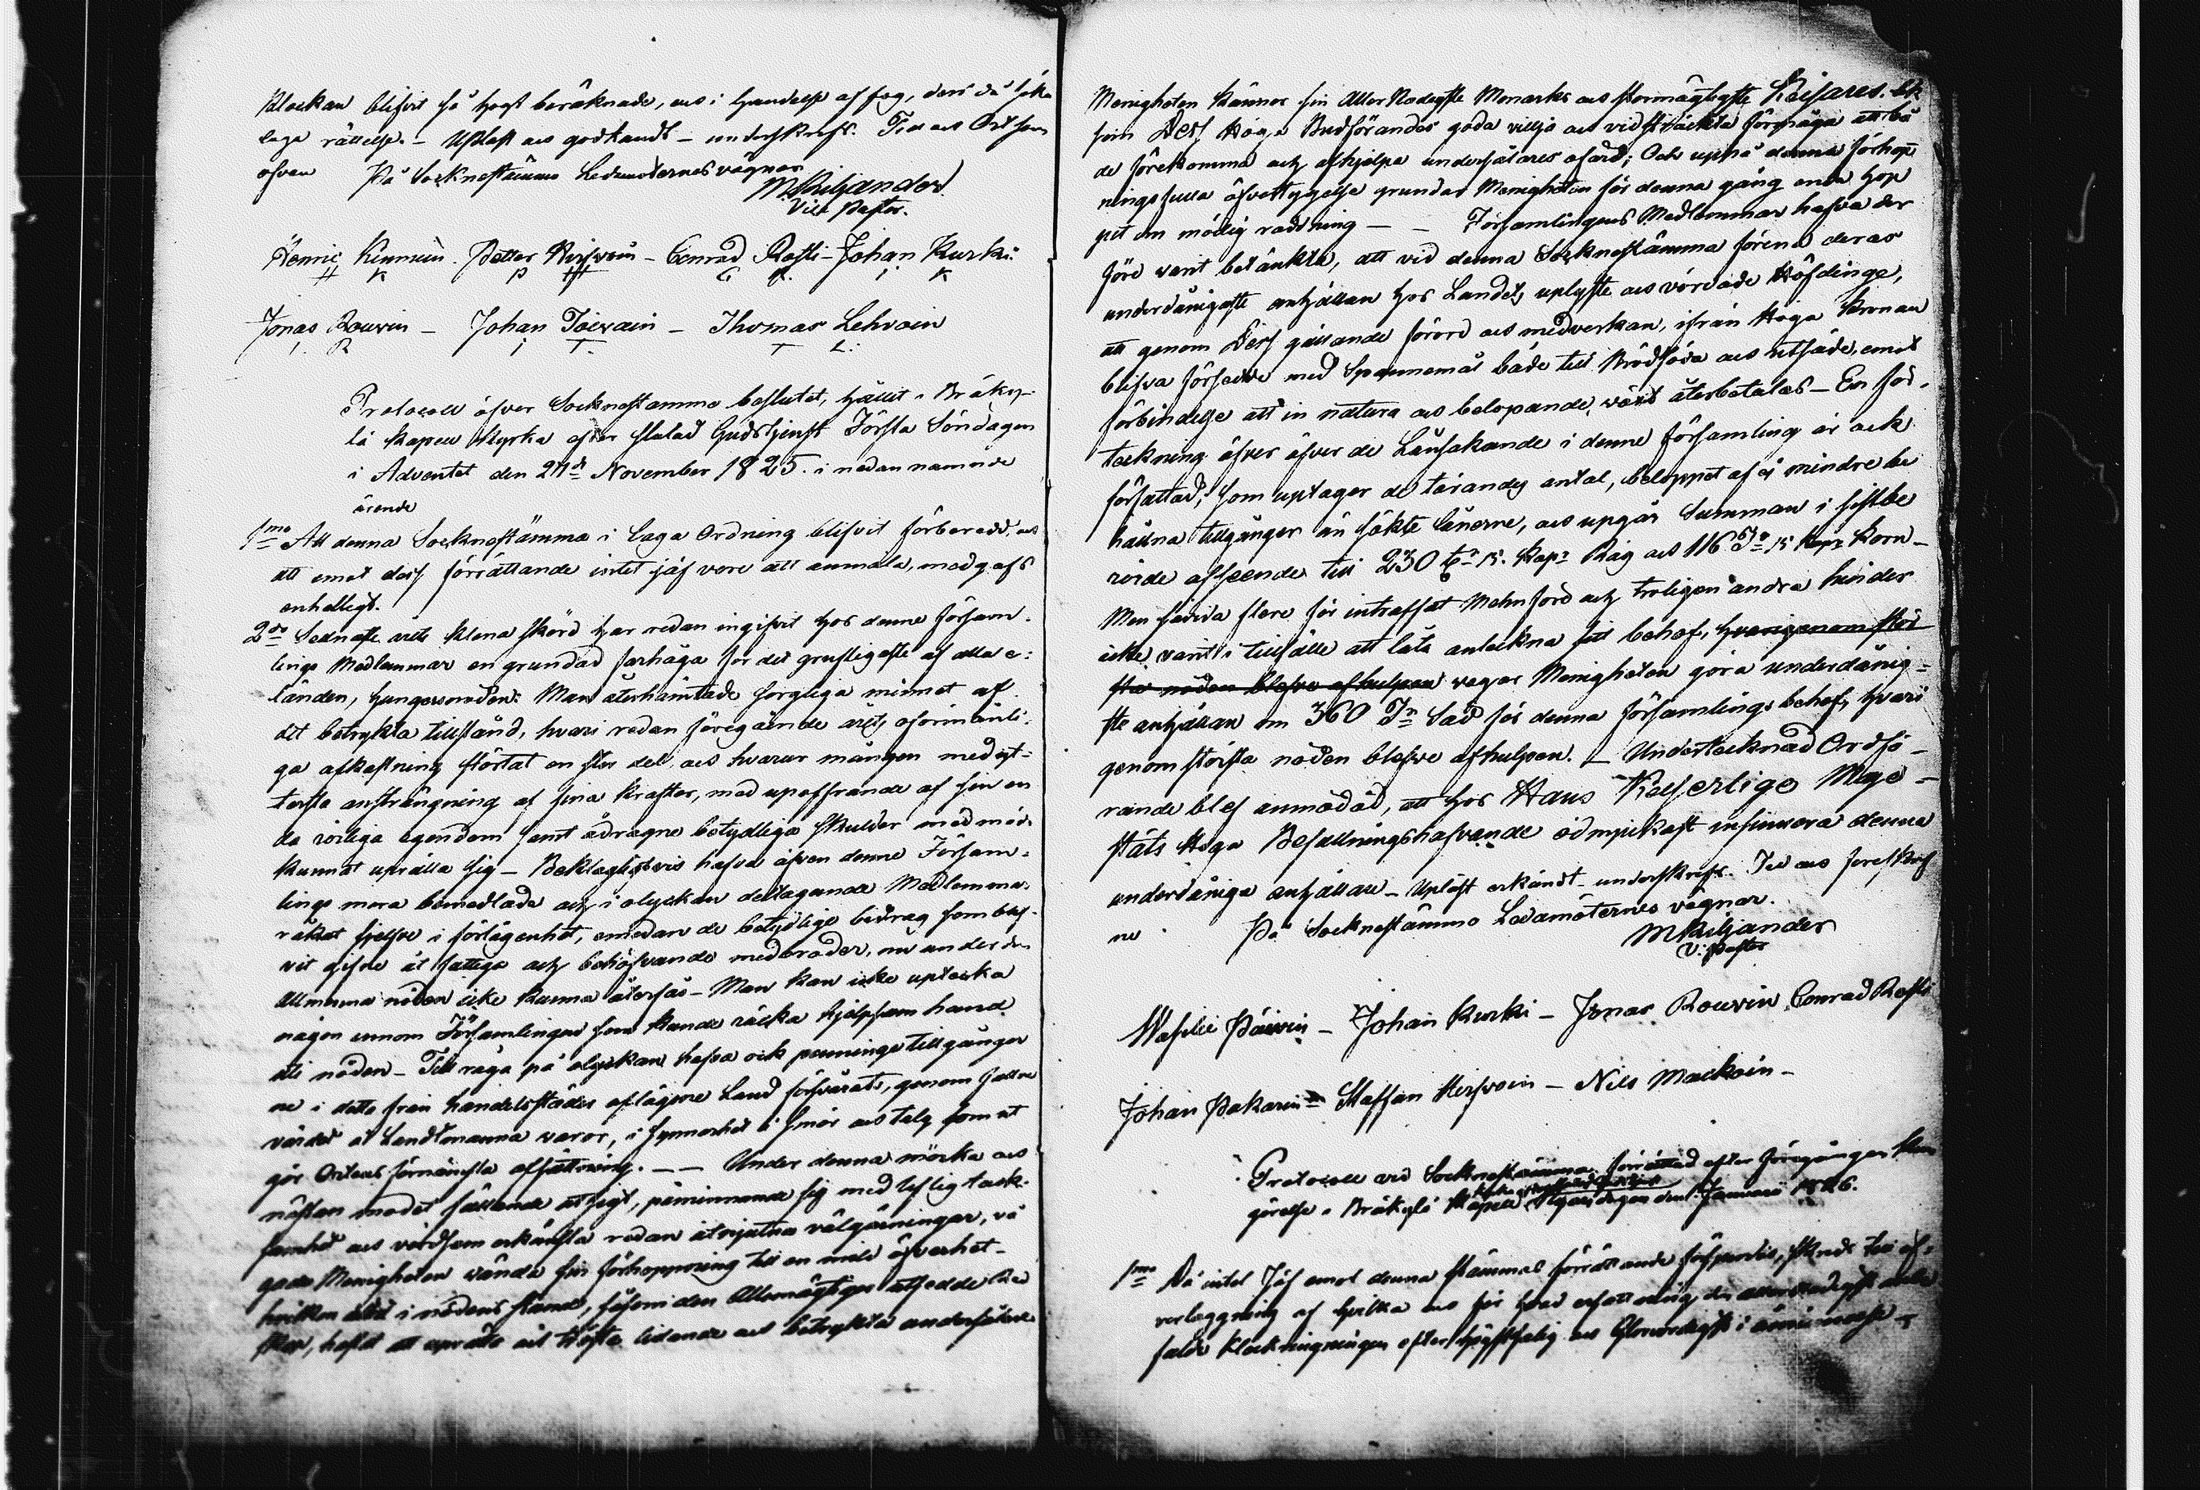 Klockan blifvit så högt beräknade, och i händelse af fog, deri då söka
laga rättelse. – Upläst och godkandt – underskrift. Tid och Ort som
ofvan På Socknestämmo Ledamöternes vägnar
M Kiljander
Vice Pastor.
Henric Kinnuin. Petter Hirfvoin – Conrad Rosti – Johan Kurki
H K P H C R. I K
Jonas Rouvin – Johan Toivain – Thomas Lehvoin
I. R I T. T L:
Protocoll öfver Socknestämmo beslutet, hållit i Bräky-
lä Kapell Kyrka efter slutad Gudstjenst Första Söndagen
i Adventet den 27de November 1825. i nedannämnde
ärende
1mo Att denna Socknestämma i laga Ordning blifvit förberedd, och
att emot dess förrättande intet jäf vore att anmäla, medgafs
enhelligt.
2do Sednaste årets klena skörd har redan ingifvit hos denne Försam-
lings Medlemmar en grundad farhåga för det grufligaste af alla e-
länden, hungersnöden. Man återhämtade sorgliga minnet af
det betrykta tillstånd, hvari redan föregående årets oförmånli-
ga afkastning störtat en stor del, och hvarur mången med yt-
tersta ansträngning af sina krafter, med upoffrande af sin en
da rörliga egendom samt ådragne betydliga skulder med möd.
kunnat uprätta sig – Beklagligtvis hafva äfven denne Försam-
lings mera bemedlade och i olyckan deltagande Medlemmar
råkat sjelfve i förlägenhet, emedan de betydlige bidrag som blif-
vit gifne åt fattige och behöfvande medbröder, nu under den
Allmänna nöden icke kunna återfås – Man kan icke uptäcka
någon innom Församlingen som kunde räcka hjelpsam hand
åt nöden – Till råga på olyckan hafva ock penninge tillgångar
ne i detta från handelsstäder aflägsne Land försvårats, genom fallne
värdet å Landtmanna varor, i synnerhet å Smör och talg som ut
gör Ortens förnämsta afsättning. – – Under denna mörka och
nästan modet fällande utsigt, påminnande sig med liflig tack-
samhet och vördsam erkänsla redan åtnjutna välgärningar, vå
gade Menigheten vända sin förhoppning till en mild öfverhet –
hvilken altid i nödens stund, såsom den Allsmägtiges utsedde Red
skap, hastat att uprätta sit Högsta lidande och betrykta undersåtare
Menigheten känner sin Aller Nådigste Monarks och stormägtigste Kejsares. etc
som Dess Höga Budförandes goda vilja och vidsträckta förmåga att bå
de förekomma och afhjelpa undersåtares ofärd; Och uppå denna förhop
ningsfulla öfvertygelse grundar Menigheten för denna gång enda hop
pet om möjlig räddning – – Församlingens Medlemmar hafva der
före varit betänkta, att vid denna Socknestämma förena deras
underdånigste anhållan hos Landets uplyste och vördade Höfdinge,
att genom Dess gällande förord och medverkan, ifrån Höga Kronan
blifva försedde med Spannemål både till Brödföda och utsäde, emot
förbindelse att in natura och belopande, vård återbetalas – En för-
teckning öfver öfver de Lånsökande i denne församling är ock
författad, som uptager de tärandes antal, beloppet af ej mindre be
hållna tillgångar än sökte lånerne, och upgår Summan i sistbe
rörde afseende till 230 tr 15. Kapr Råg och 116 Tr 15 Kapr Korn –
Men såvida flere för inträffat Mehnföre och troligen andra hinder
icke varit i tillfälle att låta anteckna sitt behof, hvarigenom stör
sta nöden blefve afhulpen vågar Menigheten göra underdånig-
ste anhållan om 360 Tr Säd för denna församlings behof, hvari
genom största nöden blefve afhulpen. – Undertecknad Ordfö-
rande blef anmodad, att hos Hans Kejserlige Maje –
stäts Höga Befallningshafvande ödmjukast insinuera denna
underdåniga anhållan – Upläst erkändt – underskrift. Tid och förelskrif
ne På Socknestämmo Ledamöternes vägnar.
M Kiljander
V: Pastor
Wasilii Päivin – Johan Kurki – Jonas Rouvin Conrad Rosti
Johan Pakarin – Staffan Hirfvoin – Nils Mackoin –
Protocoll vid Socknestämma förrättad efter föregången Kun
görelse i Bräkylä Kapell Nyårsdagen den 1 Januarii 1826.
1mo Då intet Jäf emot denna stämmas förrättande försports, skred till öf-
verläggning af hvilka och för hvad ersättning den allernådigst anbe
falde klockringningen efter Högstsalig och Glorvördigst i åminnelse –